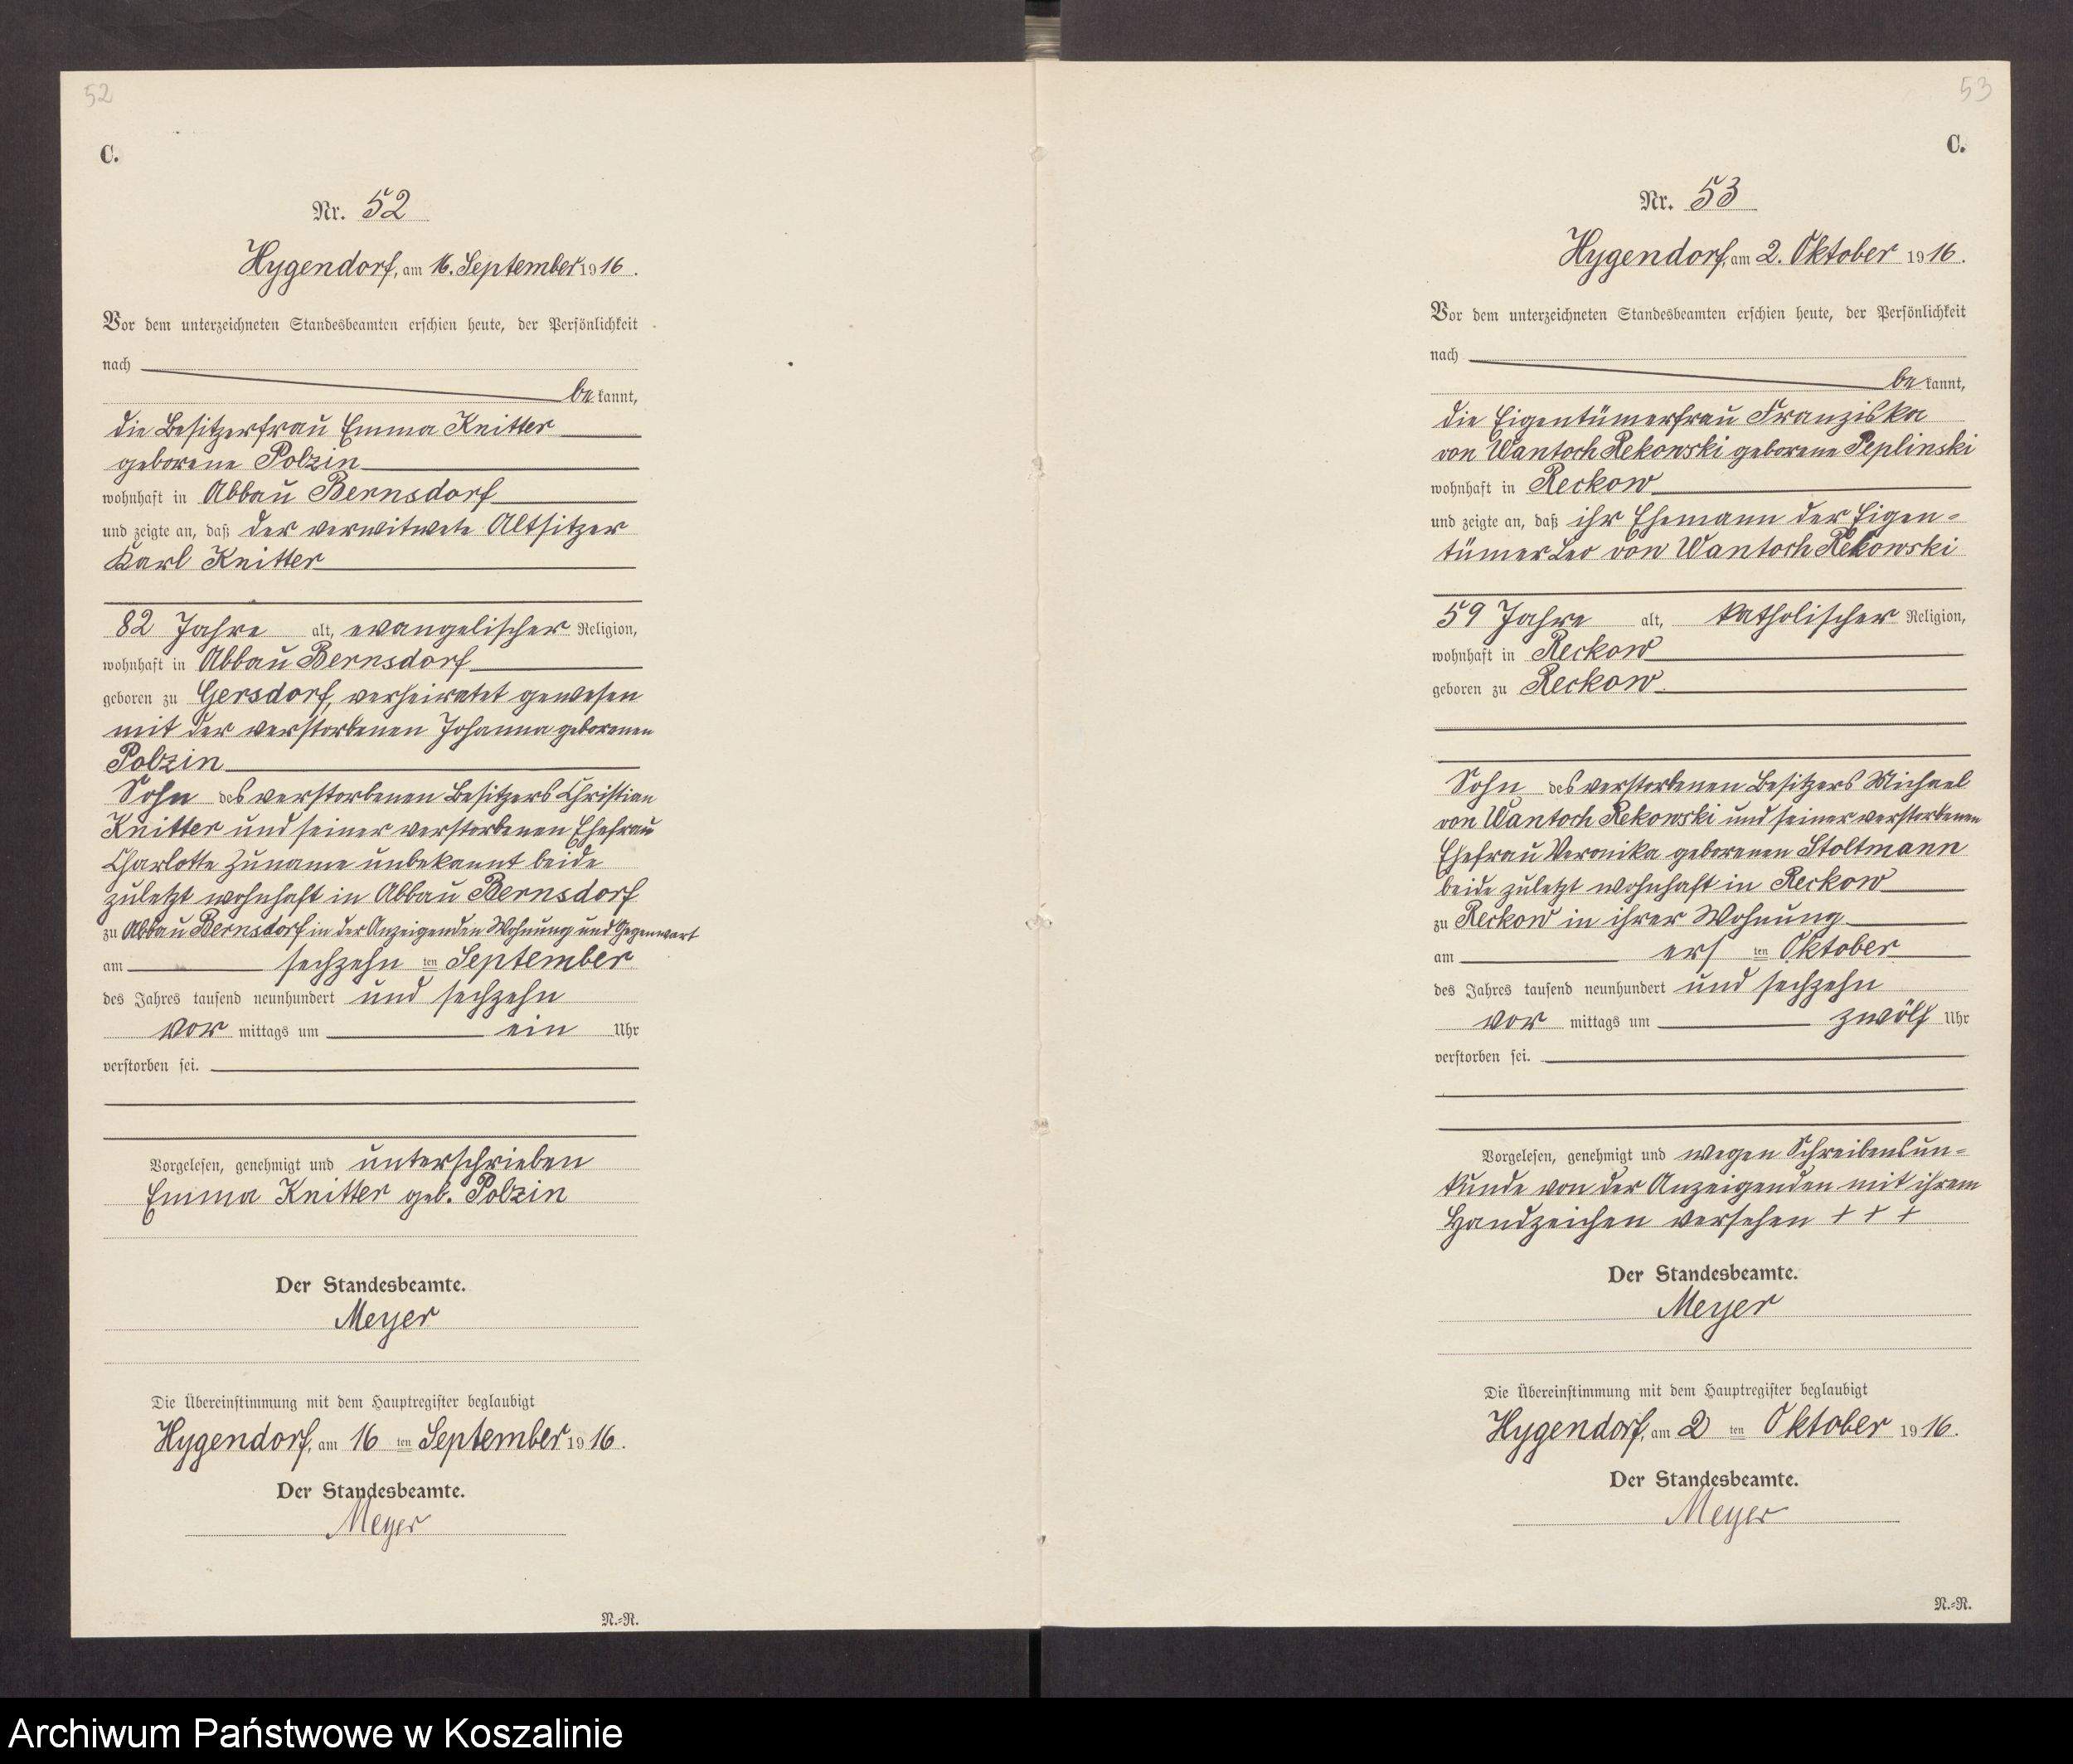 52
C.
Nr. 52
Hygendorf, am 16. September 1916.
Vor dem unterzeichneten Standesbeamten erschien heute, der Persönlichkeit
nach
bekannt,
die Besitzerfrau Emma Knitter
geborene Polzin
wohnhaft in Abbau Bernsdorf
und zeigte an, daß der verwitwete Altsitzer
Karl Knitter
82 Jahre alt, evangelischer Religion,
wohnhaft in Abbau Bernsdorf
geboren zu Gersdorf, verheiratet gewesen
mit der verstorbenen Johanna geborenen
Polzin
Sohn des verstorbenen Besitzers Christian
Knitter und seiner verstorbenen Ehefrau
Charlotte Zuname unbekannt beide
zuletzt wohnhaft in Abbau Bernsdorf
zu Abbau Bernsdorf in der Anzeigenden Wohnung und Gegenwart
am sechzehn ten September
des Jahres tausend neunhundert und sechzehn
vor mittags um ein Uhr
verstorben sei.
Vorgelesen, genehmigt und unterschrieben
Emma Knitter geb. Polzin
Der Standesbeamte.
Meyer
Die Übereinstimmung mit dem Hauptregister beglaubigt
Hygendorf, am 16 ten September 1916.
Der Standesbeamte.
Meyer
N.=R.
53
C.
Nr. 53
Hygendorf, am 2. Oktober 1916.
Vor dem unterzeichneten Standesbeamten erschien heute, der Persönlichkeit
nach
bekannt,
die Eigentümerfrau Franziska
von Wantoch Rekowski geborene Peplinski
wohnhaft in Reckow
und zeigte an, daß ihr Ehemann der Eigen=
tümer Leo von Wantoch Rekowski
59 Jahre alt, katholischer Religion,
wohnhaft in Reckow
geboren zu Reckow.
Sohn des verstorbenen Besitzers Michael
von Wantoch Rekowski und seiner verstorbenen
Ehefrau Veronika geborenen Stoltmann
beide zuletzt wohnhaft in Reckow
zu Reckow in ihrer Wohnung
am ers ten Oktober
des Jahres tausend neunhundert und sechzehn
vor mittags um zwölf Uhr
verstorben sei.
Vorgelesen, genehmigt und wegen Schreibensun=
kunde von der Anzeigenden mit ihrem
Handzeichen versehen + + +
Der Standesbeamte.
Meyer
Die Übereinstimmung mit dem Hauptregister beglaubigt
Hygendorf, am 2 ten Oktober 1916.
Der Standesbeamte.
Meyer
N.=R.
Archiwum Państwowe w Koszalinie